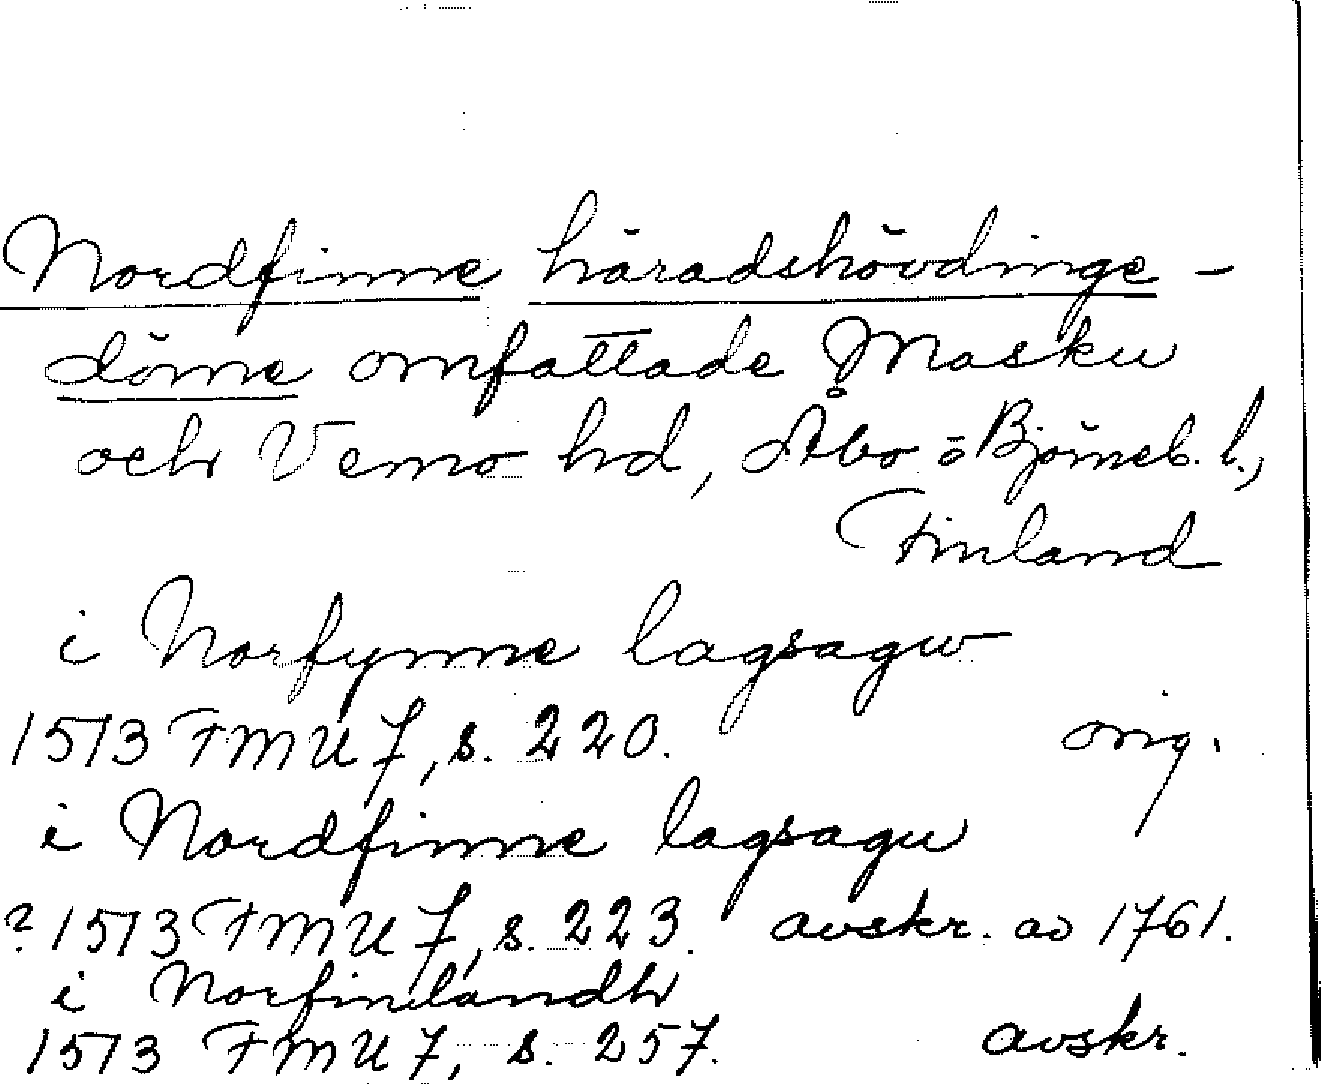 Nordfinne häradshövdinge-
döme omfattade Masku
och Vemo hd, Åbo o Björneb. l.,
Finland
i Norfynne lagsagw
1513 FMU 7, s. 220. orig.
i Nordfinne lagsagu
? 1513 FMU 7, s. 223. avskr. av 1761.
i Norfinlandh
1513 FMU 7, s. 257. avskr.